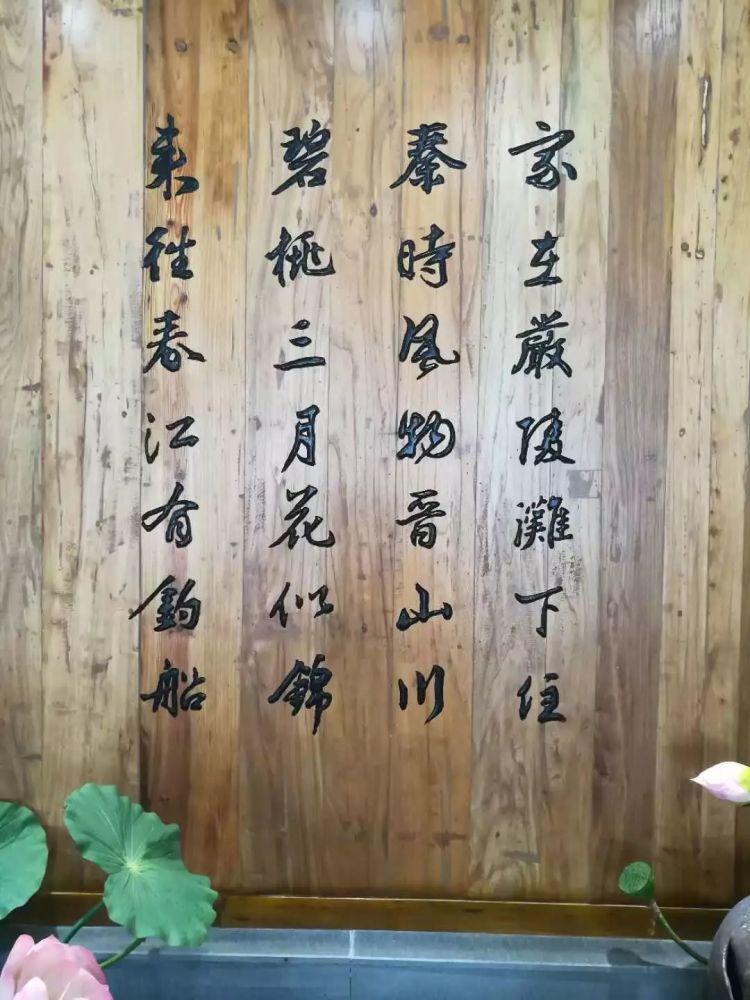 家在嚴陵灘下住
秦時風物晉山川
碧桃三月花似錦
来往春江有釣船